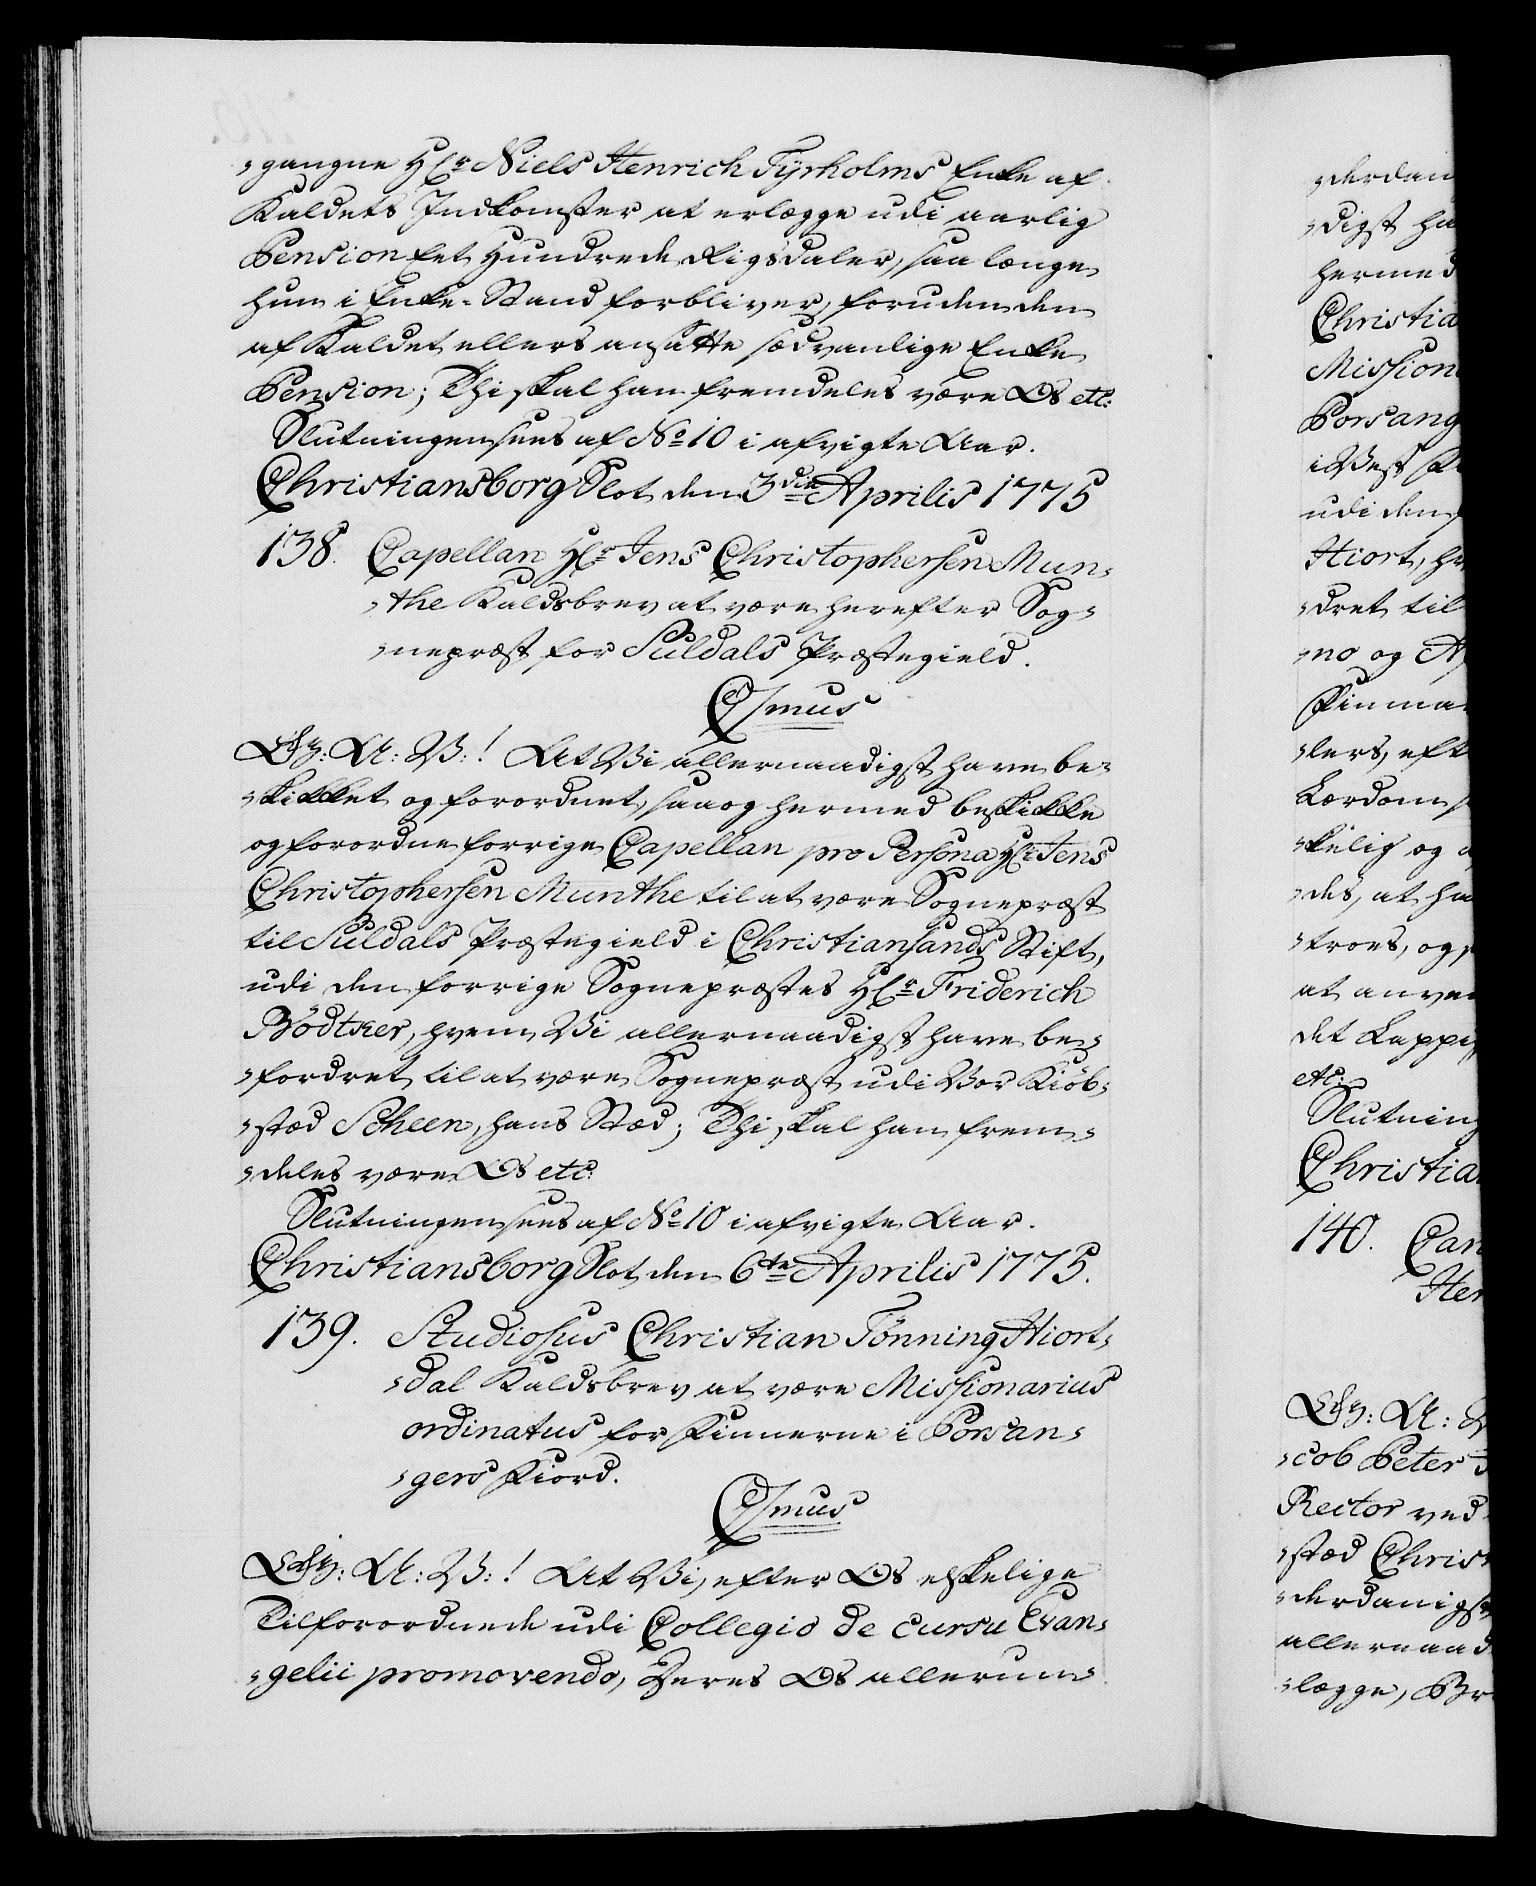 -gangne Hr. Niels Henrich Tyrholms Enke af
Kaldets Indkomster at erlægge udi aarlig
Pension Eet Hundrede Rigsdaler, saa længe
hun i Enke-Stand forbliver, foruden den
af Kaldet ellers ansatte sædvanlige Enke
Pension; Thi skal han fremdeles være Os etc:
Slutningen sees af No 10 i afvigte Aar.
Christiansborg Slot den 3die Aprilis 1775
138. Capellan Hr. Jens Christophersen Mun-
-the Kaldsbrev at være herefter Sog-
-nepræst for Suldals Præstegield.
C 7mus
G: A: V:! At Vi allernaadigst have be-
-skikket og forordnet, saa og hermed beskikke
og forordne forrige Capellan pro Persona Hr. Jens
Christophersen Munthe til at være Sognepræst
til Suldals Præstegield i Christiansands Stift,
udi den forrige Sognepræstes Hr. Friderich
Bödtker, hvem Vi allernaadigst have be-
-fordret til at være Sognepræst udi Vor Kiöb-
-stæd Scheen, hans Stæd; Thi skal han frem-
-deles være Os etc:
Slutningen sees af No 10 i afvigte Aar.
Christiansborg Slot den 6te Aprilis 1775.
139. Studiosus Christian Tönning Hiort-
-dal Kaldsbrev at være Missionarius
ordinatus for Finnerne i Porsan-
-gers Fiord.
C 7mus
G: A: V:! At Vi, efter Os elskelige
Tilforordnede udi Collegio de cursu Evan-
-gelii promovendo, Deres Os allerun-
-derdan
-digst ha
hermed
Christia
Mission
Porsang
i Vest Fi
udi den
Hiort, h
-dret til
-no og A
Finma
-lers, eft
Lærdom
-kelig og
-des, at ha
-troes, og
at anven
det Lappi
etc:
Slutning
Christia
140. Can
Her
G: A: V
-cob Peter
Rector ved
-stæd Chris
-derdanigst
allernaad
-lægge, Br